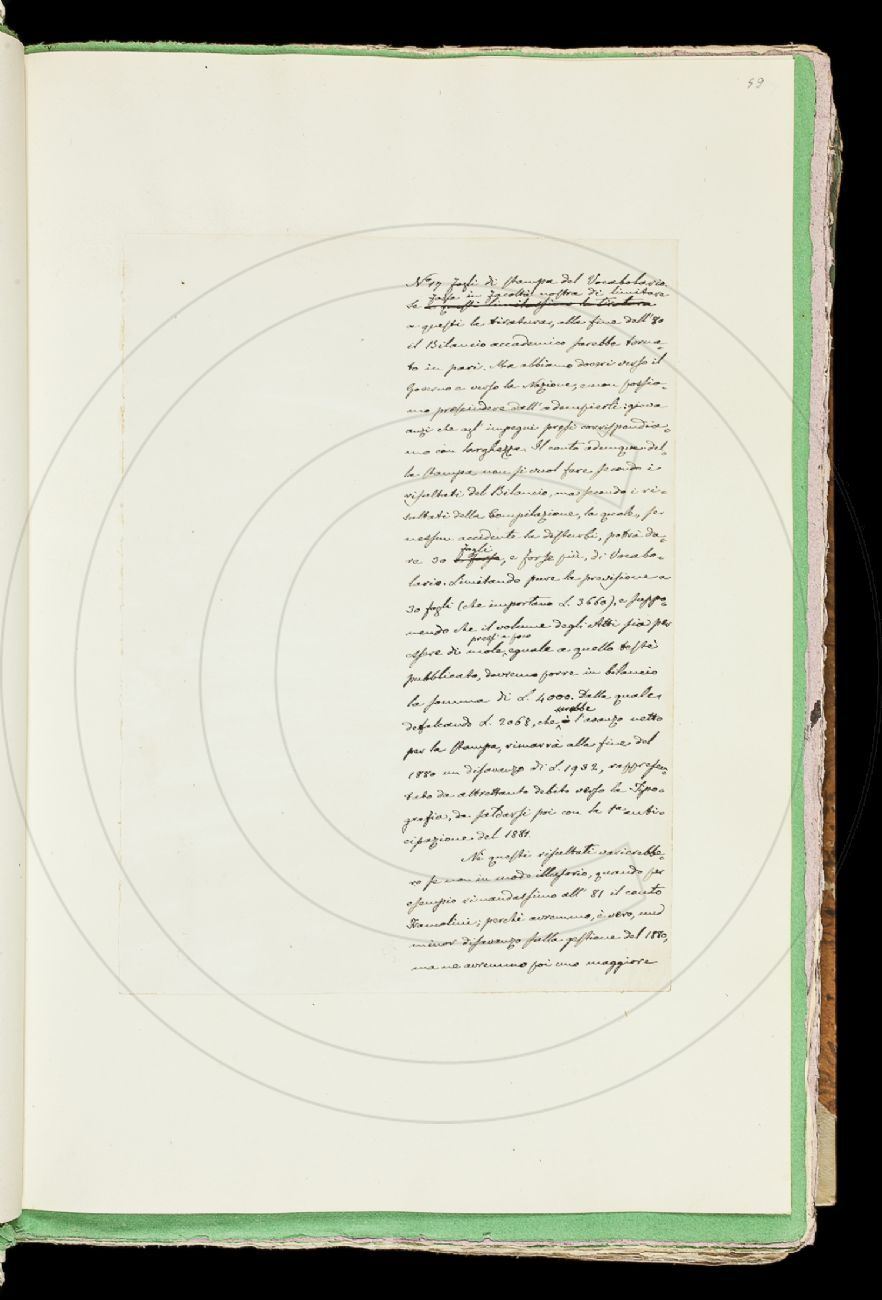 59
N.º 19 fogli di stampa del Vocabolario.
Se fosse in facoltà nostra di limitare
a questi limitassimo la tiratura
a questi la tiratura, alla fine dell'80
il Bilancio accademico sarebbe torna-
to in pari. Ma abbiamo doveri verso il
Governo e verso la Nazione, e non possia-
mo prescindere dall'adempierli: giova
anzi che agl'impegni presi corrispondia-
mo con larghezza. Il conto adunque del-
la stampa non si vuol fare secondo i
risultati del Bilancio, ma secondo i ri-
sultati della Compilazione, la quale, se
nessun accidente la disturbi, potrà da-
re 30 fogli, e forse più, di Vocabo-
lario. Limitando pure la previsione a
30 fogli (che importano L. 3660), e suppo-
nendo che il volume degli Atti sia per
essere di mole, press'a poco eguale a quello testè
pubblicato, dovremo porre in bilancio
la somma di L. 4000. Dalla quale
defalcando L. 2068, che sarebbe l'avanzo netto
per la stampa, rimarrà alla fine del
1880 un disavanzo di L. 1932, rappresen-
tato da altrettanto debito verso la Tipo-
grafia, da saldarsi poi con la 1ª antici-
cipazione del 1881.
Nè questi risultati varierebbe-
ro se non in modo illusorio, quando per
esempio rimandassimo all'81 il conto
Framolini; perchè avremmo, è vero, un
minor disavanzo sulla gestione del 1880,
ma ne avremmo poi uno maggiore